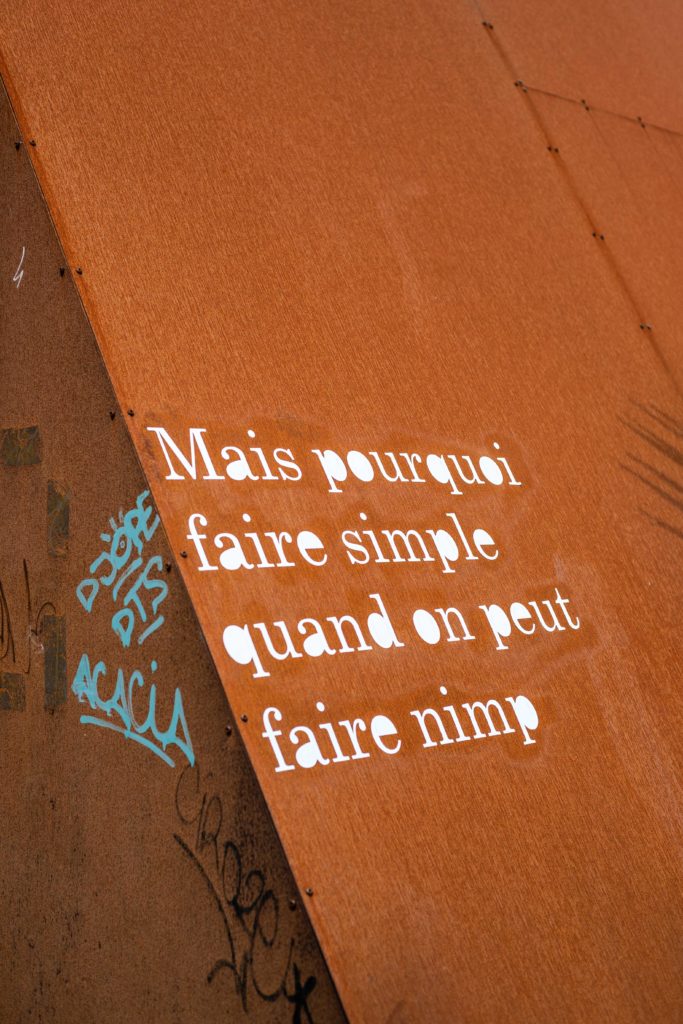 Mais pourquoi
faire simple
quand on peut
faire nimp
DJORE
DTS
ACACIA